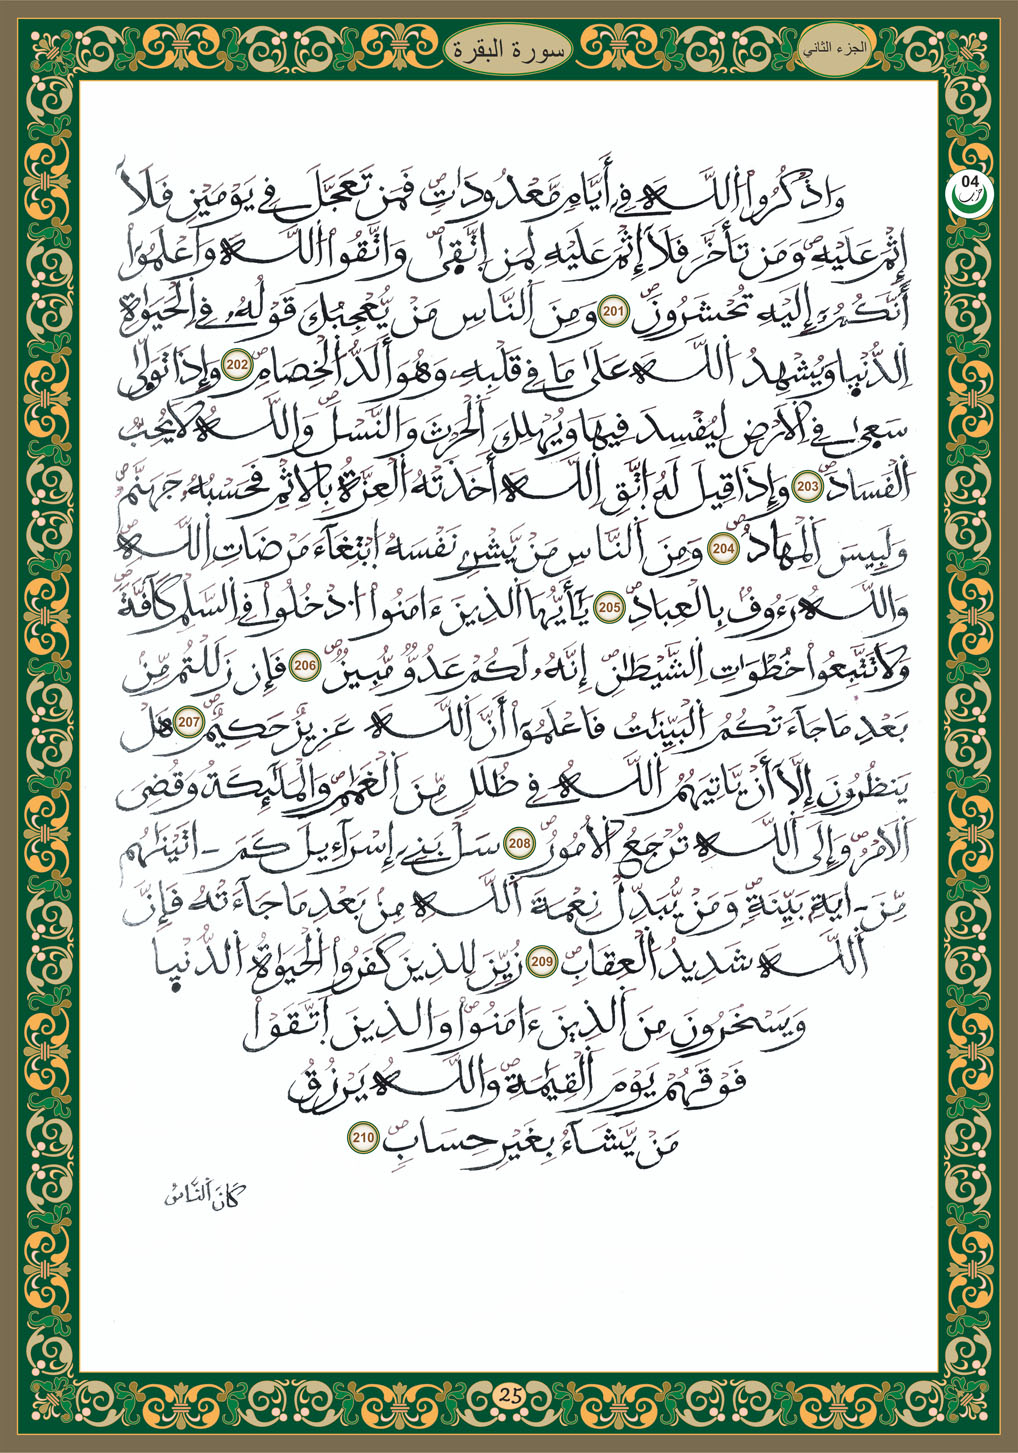 الجزء الثاني
سورة البقرة
04
حزب
وَاذْكُرُوا اللَّهَ فِي أَيَّامٍ مَّعْدُودَاتٍ فَمَن تَعَجَّلَ فِي يَوْمَيْنِ فَلَآ
إِثْمَ عَلَيْهِ وَمَن تَأَخَّرَ فَلَآ إِثْمَ عَلَيْهِ لِمَنِ اِتَّقَىٰ وَاتَّقُوا اللَّهَ وَاعْلَمُوٓا
أَنَّكُمُۥٓ إِلَيْهِ تُحْشَرُونَ 201 وَمِنَ اَلنَّاسِ مَنْ يُّعْجِبُكَ قَوْلُهُۥ فِي الْحَيَوٰةِ
اِلدُّنْيٜا وَيُشْهِدُ اللَّهَ عَلَىٰ مَا فِي قَلْبِهِۦ وَهُوَ أَلَدُّ الْخِصَامِ 202 وَإِذَا تَوَلّٜىٰ
سَعٜىٰ فِي اِلَارْضِ لِيُفْسِدَ فِيهَا وَيُهْلِكَ اَلْحَرْثَ وَالنَّسْلَ وَاللَّهُ لَا يُحِبُّ
اَلْفَسَادَ 203 وَإِذَا قِيلَ لَهُ اُتَّقِ اِللَّهَ أَخَذَتْهُ اَلْعِزَّةُ بِالِاثْمِ فَحَسْبُهُۥ جَهَنَّمُ
وَلَبِيسَ اَلْمِهَادُ 204 وَمِنَ اَلنَّاسِ مَنْ يَّشْرِي نَفْسَهُ اُبْتِغَآءَ مَرْضَاتِ اِللَّهِ
وَاللَّهُ رَءُوفٌۢ بِالْعِبَادِ 205 يَٰٓأَيُّهَا اَلذِينَ ءَامَنُوا اُدْخُلُوا فِي السَّلْمِ كَآفَّةً
وَلَا تَتَّبِعُوا خُطْوَٰتِ اِلشَّيْطَٰنِ إِنَّهُۥ لَكُمْ عَدُوٌّ مُّبِينٌ 206 فَإِن زَلَلْتُم مِّنۢ
بَعْدِ مَا جَآءَتْكُمُ اُلْبَيِّنَٰتُ فَاعْلَمُوٓا أَنَّ اَللَّهَ عَزِيزٌ حَكِيمٌ 207 هَلْ
يَنظُرُونَ إِلَّآ أَنْ يَّاتِيَهُمُ اُللَّهُ فِي ظُلَلٍ مِّنَ اَلْغَمَٰمِ وَالْمَلَٰٓئِكَةُ وَقُضِيَ
اَلَامْرُ وَإِلَى اَللَّهِ تُرْجَعُ اُلُامُورُ 208 سَلْ بَنِيٓ إِسْرَآءِيلَ كَمَ ـ اتَيْنَٰهُم
مِّنَ ـ ايَةِۭ بَيِّنَةٍ وَمَنْ يُّبَدِّلْ نِعْمَةَ اَللَّهِ مِنۢ بَعْدِ مَا جَآءَتْهُ فَإِنَّ
اَللَّهَ شَدِيدُ اُلْعِقَابِ 209 زُيِّنَ لِلذِينَ كَفَرُوا الْحَيَوٰةُ اُلدُّنْيٜا
وَيَسْخَرُونَ مِنَ اَلذِينَ ءَامَنُوا وَالذِينَ اَتَّقَوْا
فَوْقَهُمْ يَوْمَ اَلْقِيَٰمَةِ وَاللَّهُ يَرْزُقُ
مَنْ يَّشَآءُ بِغَيْرِ حِسَابٍ 210
كَانَ اَلنَّاسُ
25